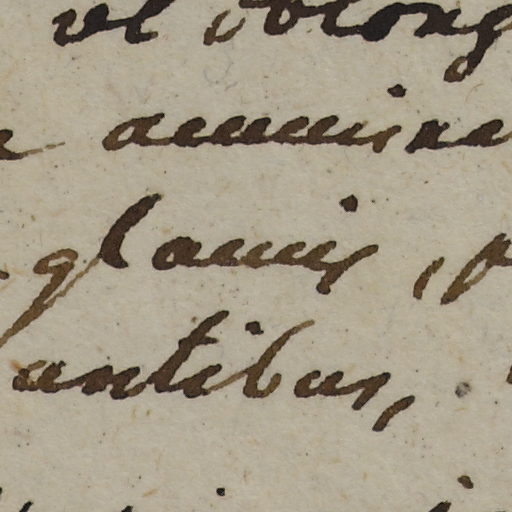 vel oblong
acumina
glaucis, p
antibus,